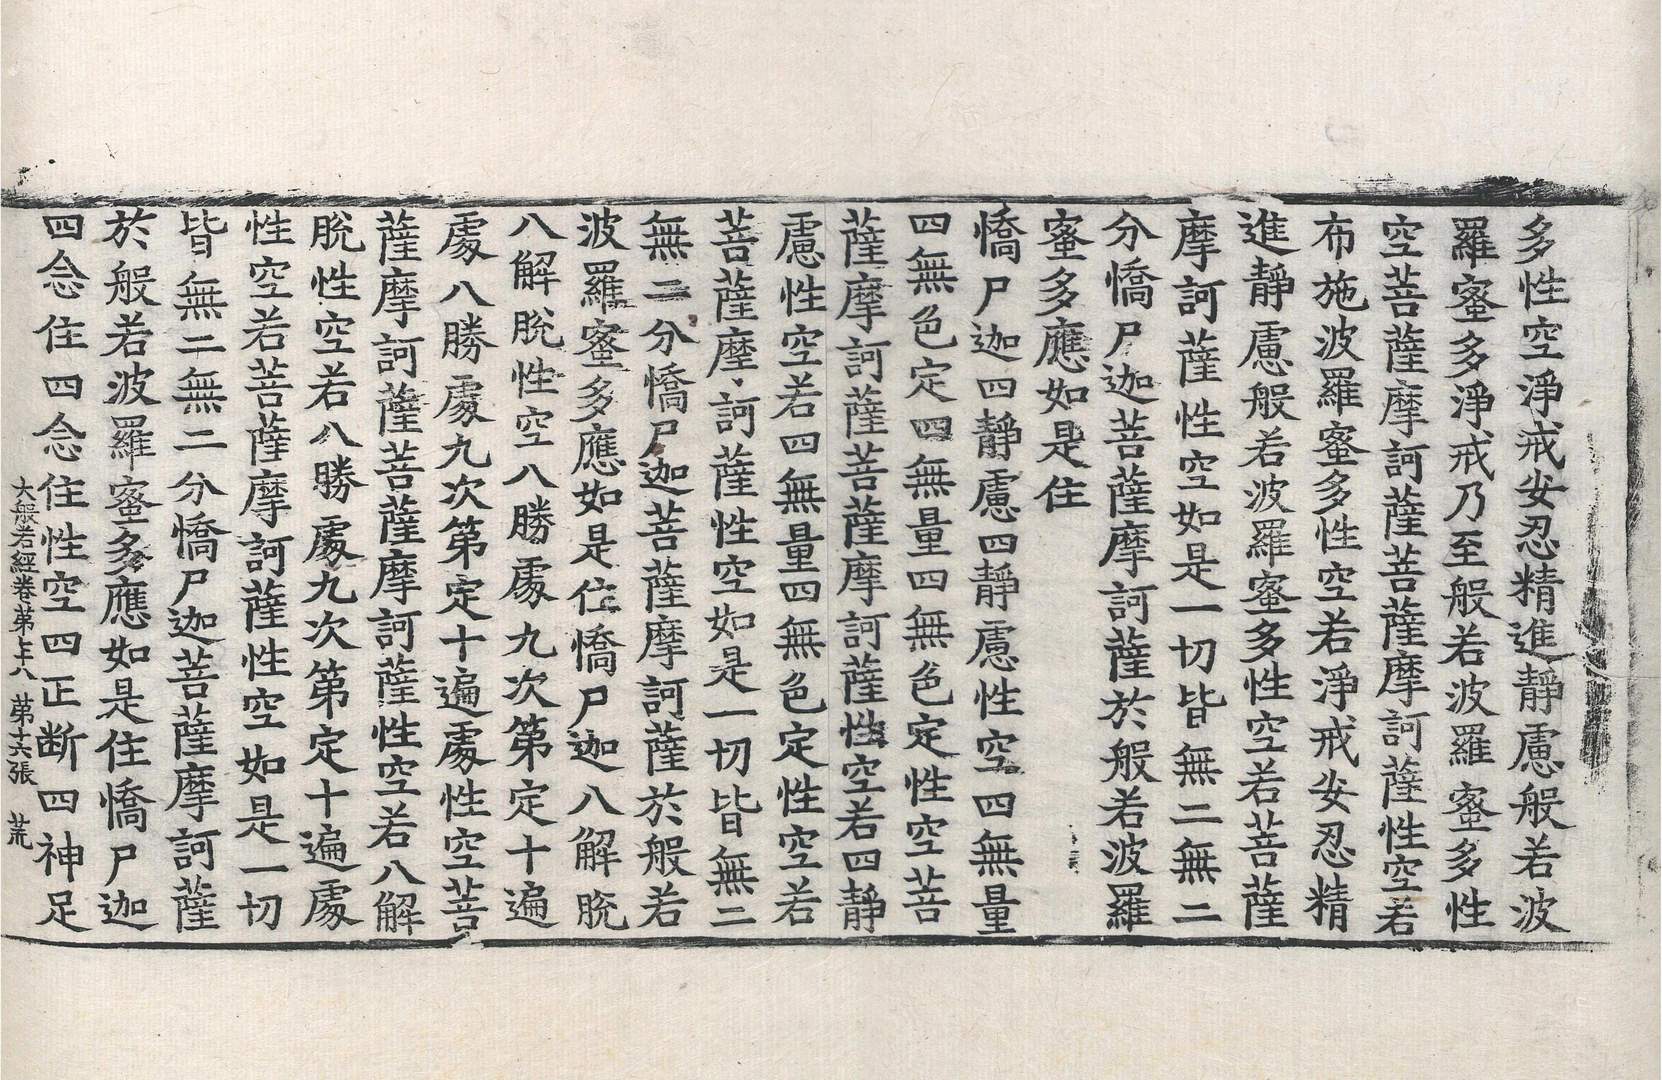 多性空淨戒安忍精進靜慮般若波
羅蜜多淨戒乃至般若波羅蜜多性
空菩薩摩訶薩菩薩摩訶薩性空若
布施波羅蜜多性空若淨戒安忍精
進靜慮般若波羅蜜多性空若菩薩
摩訶薩性空如是一切皆無二無二
分憍尸迦菩薩摩訶薩於般若波羅
蜜多應如是住
憍尸迦四靜慮四靜慮性空四無量
四無色定四無量四無色定性空菩
薩摩訶薩菩薩摩訶薩性空若四靜
慮性空若四無量四無色定性空若
菩薩摩訶薩性空如是一切皆無二
無二分憍尸迦菩薩摩訶薩於般若
波羅蜜多應如是住憍尸迦八解脫
八解脫性空八勝處九次第定十遍
處八勝處九次第定十遍處性空菩
薩摩訶薩菩薩摩訶薩性空若八解
脫性空若八勝處九次第定十遍處
性空若菩薩摩訶薩性空如是一切
皆無二無二分憍尸迦菩薩摩訶薩
於般若波羅蜜多應如是住憍尸迦
四念住四念住性空四正断四神足
大般若經卷第七十八 第十六張 荒